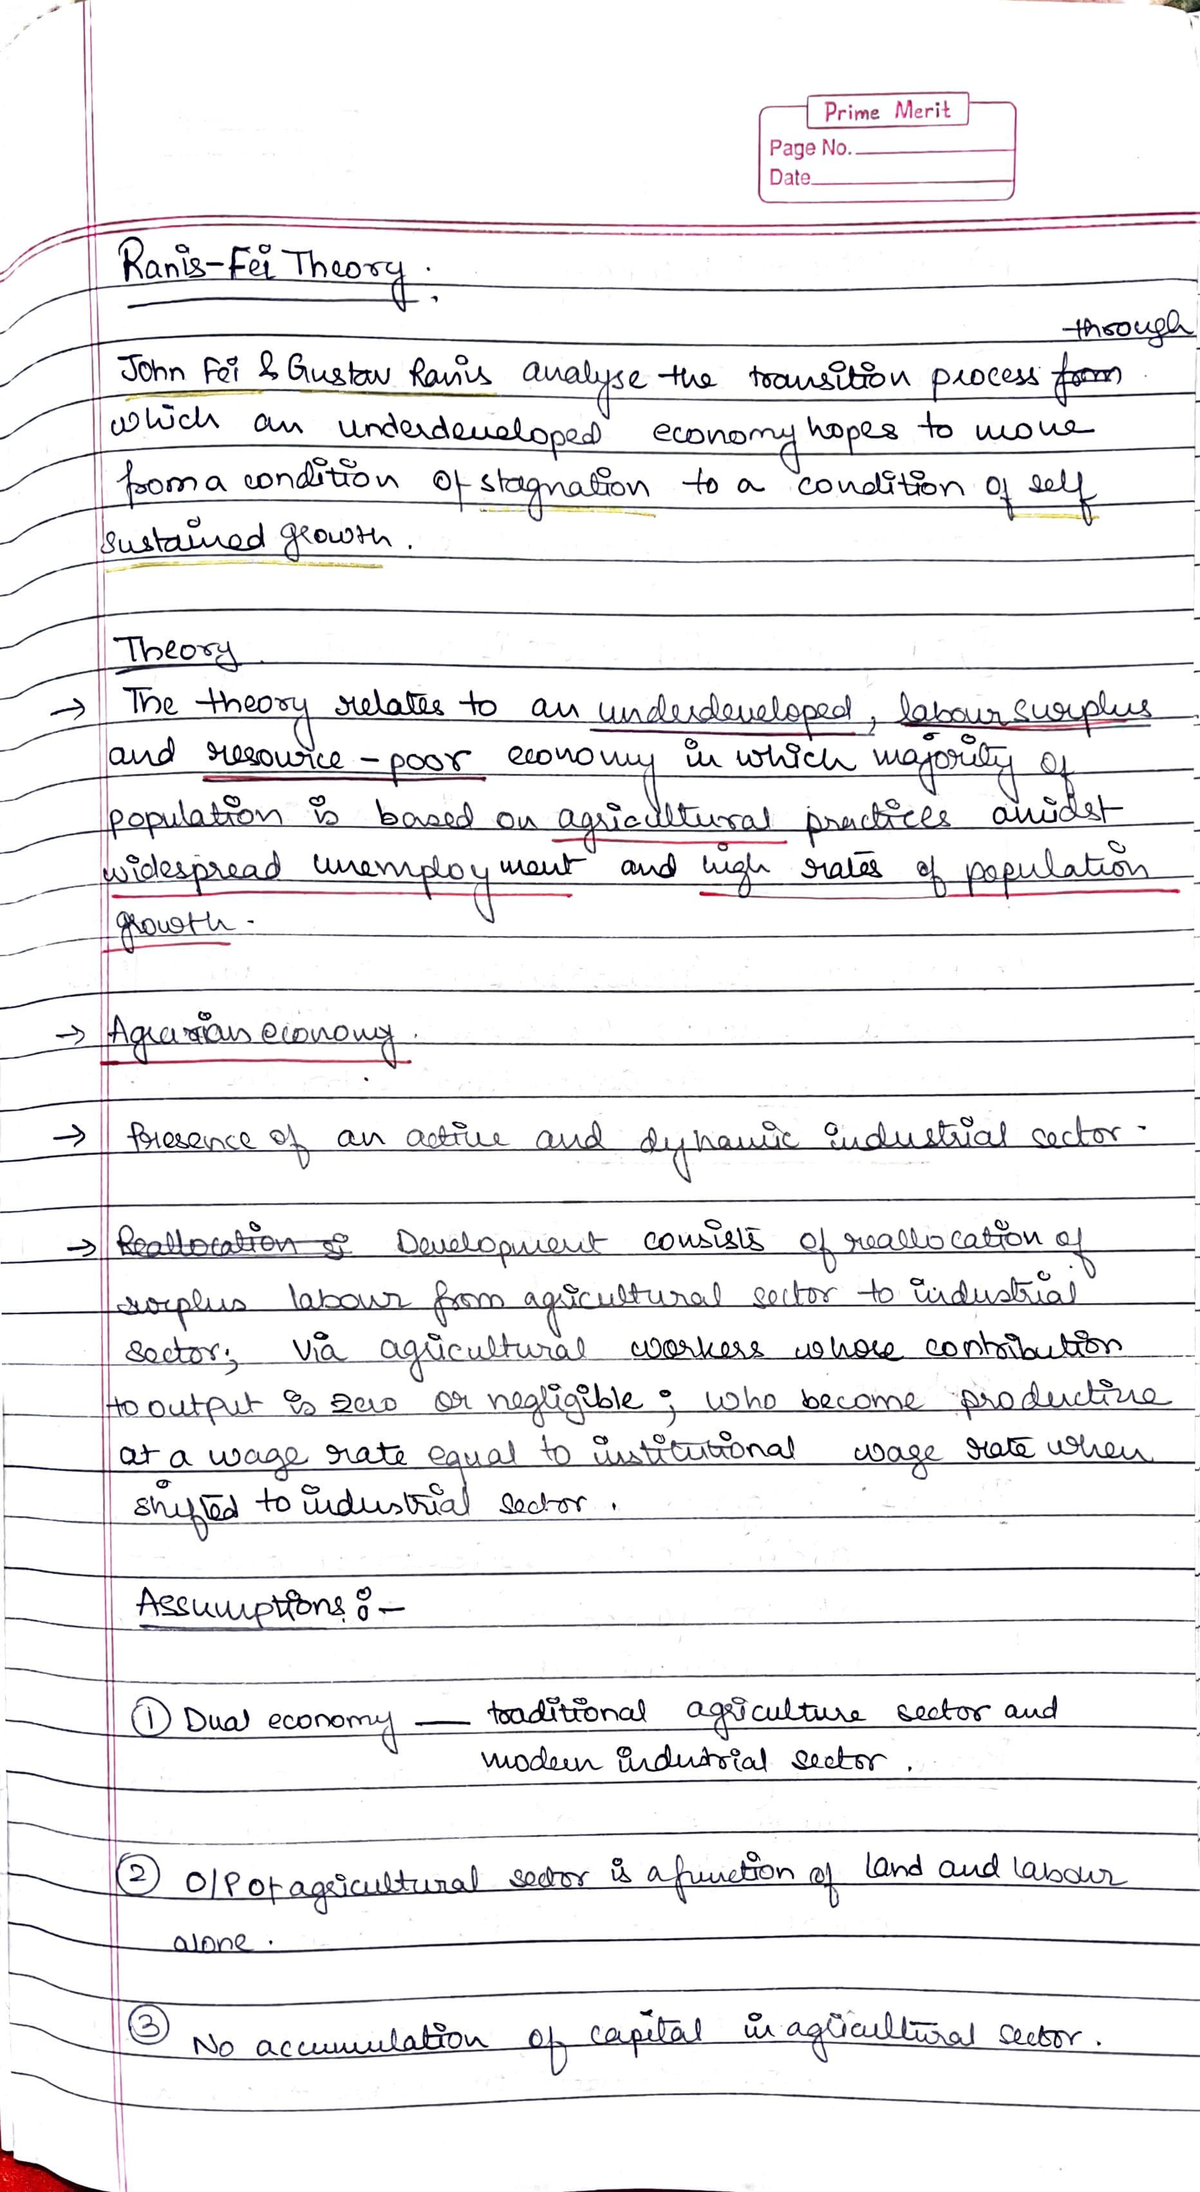 Prime Merit
Page No.
Date
Ranis-Fei Theory.
through
John Fei & Gustav Ranis analyse the transition process from
which an underdeveloped economy hopes to move
from a condition of stagnation to a condition of self
sustained growth.
Theory
→ The theory relates to an underdeveloped, labour surplus
and resource-poor economy in which majority of
population is based on agricultural practices amidst
widespread unemployment and high rates of population
growth.
→ Agrarian economy.
→ Presence of an active and dynamic industrial sector.
→ Reallocation of Development consists of reallocation of
surplus labour from agricultural sector to industrial
sector; via agricultural workers whose contribution
to output is zero or negligible; who become productive
at a wage rate equal to institutional wage rate when
shifted to industrial sector.
Assumptions:-
① Dual economy — traditional agriculture sector and
modern industrial sector.
② O/P of agricultural sector is a function of land and labour
alone.
③ No accumulation of capital in agricultural sector.